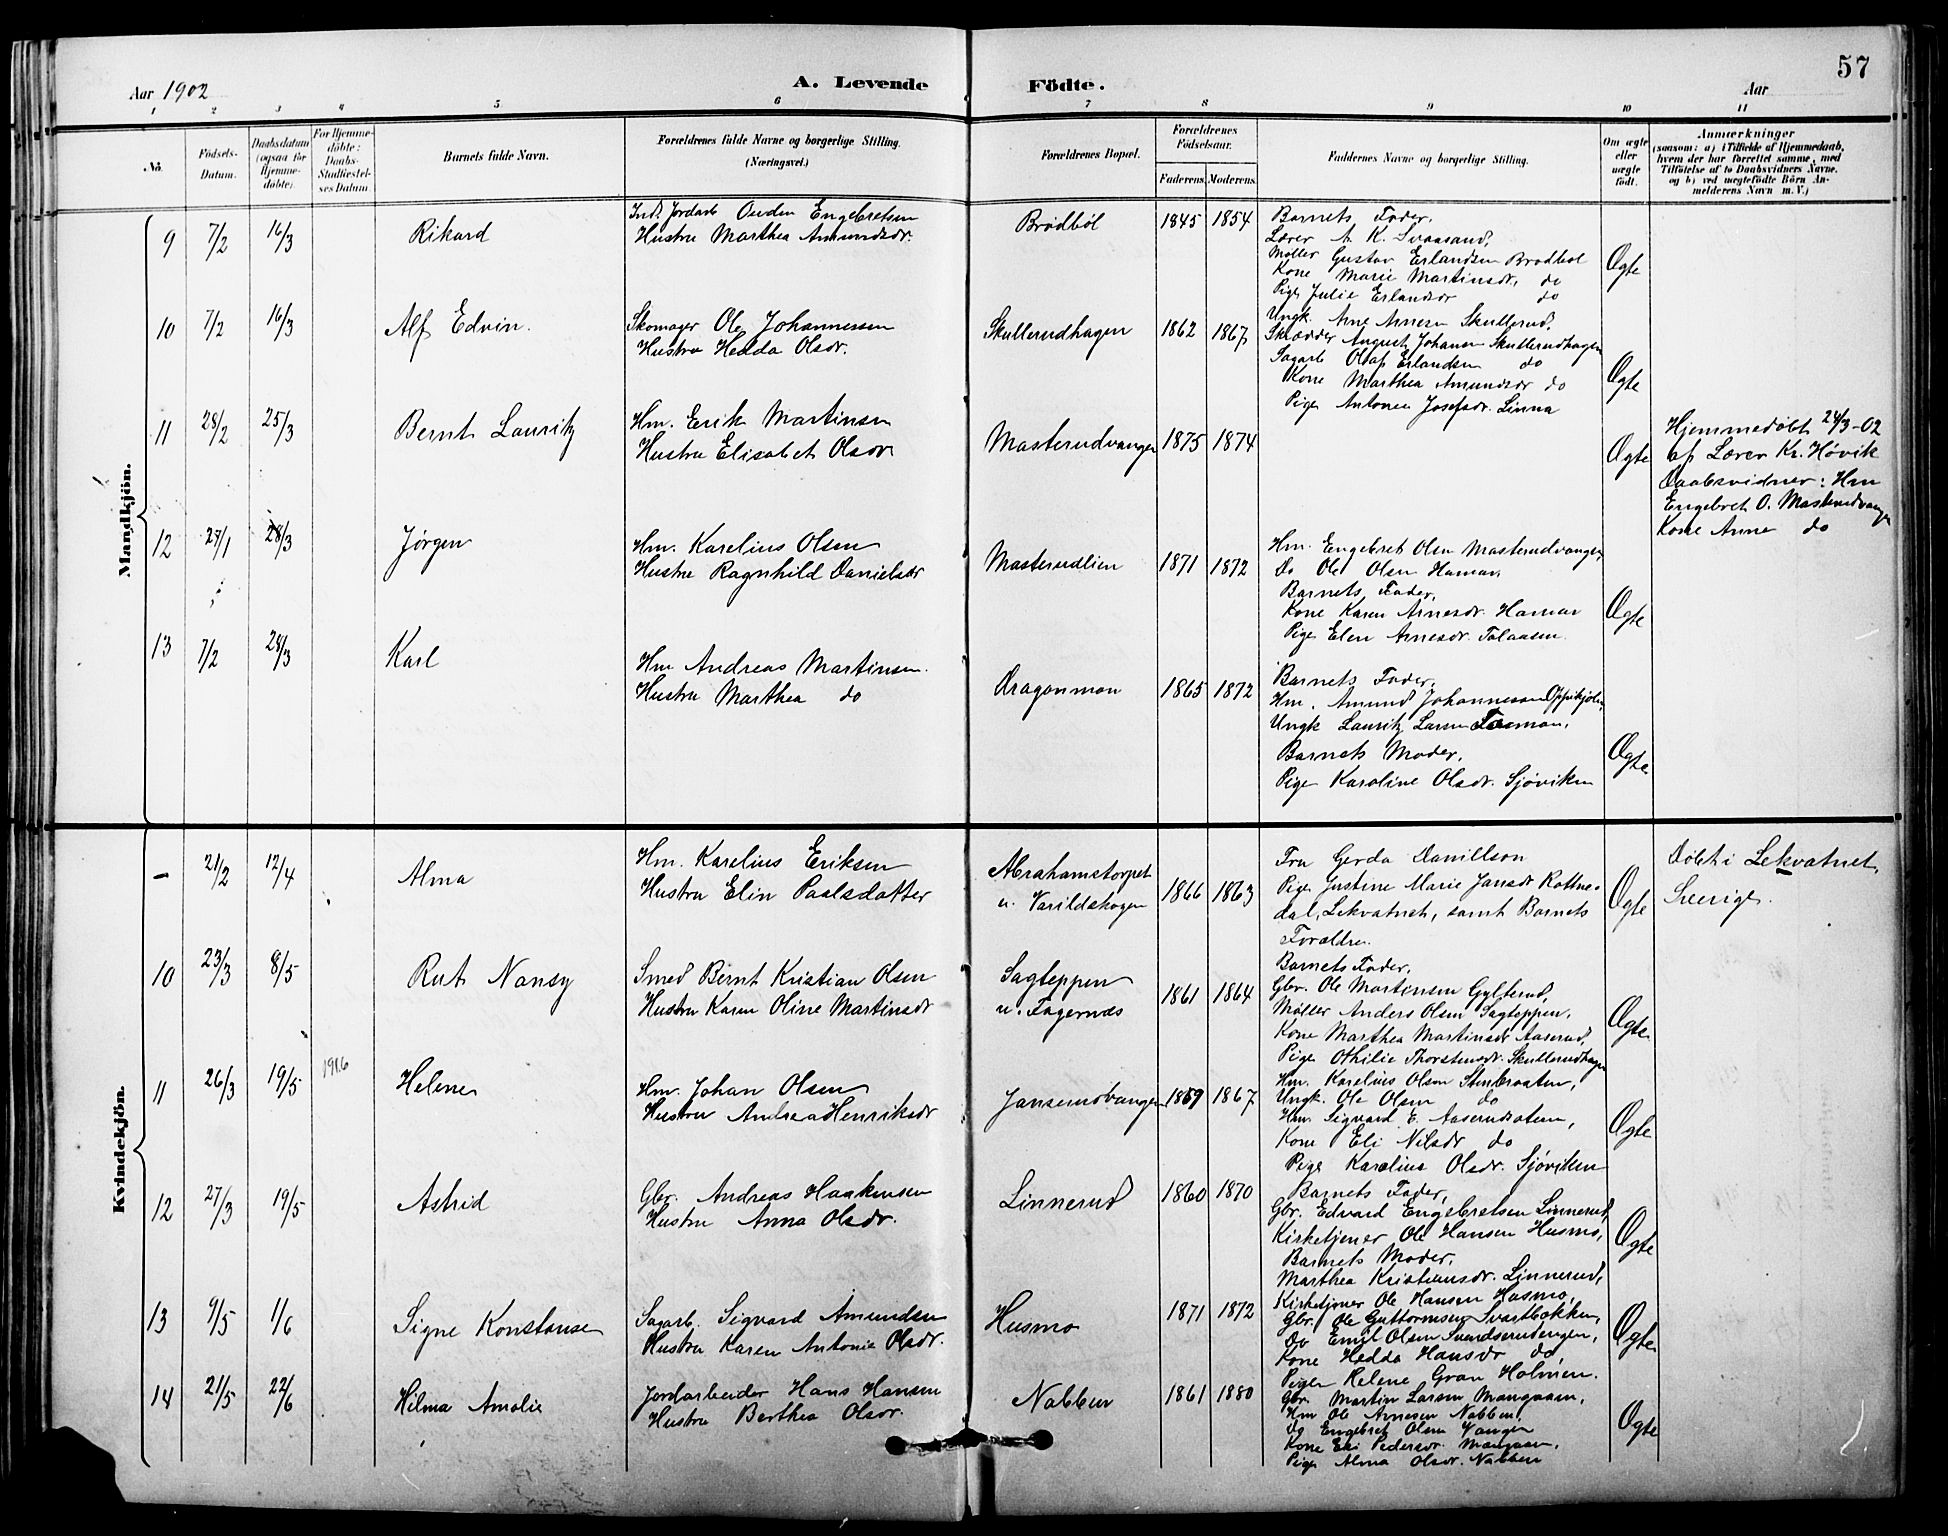 57
Aar 1902
A. Levende Födte.
Aar
1 2 3 4 5 6 7 8 9 10 11
No.
Födsels-Datum.
Daabsdatum (ogsaa for Hjemme-döbte).
For Hjemme-döbte: Daabs-Stadfæstel-ses Datum
Barnets fulde Navn.
Forældrenes fulde Navne og borgerlige Stilling. (Næringsvei.)
Forældrenes Bopæl.
Forældrenes Födselsaar.
Faderens. Moderens.
Faddernes Navne og borgerlige Stilling.
Om ægte eller uægte födt.
Anmærkninger
(saasom: a) i Tilfælde af Hjemmedaab,
hvem der har forrettet samme, med
Tilföielse af to Daabsvidners Navne.
og b) ved uægtefödte Börn An-
melderens Navn m. V.)
Mandkjön.
9 7/2 16/3 Rikard
Ind. Jordarb Ouden Engebretsen
Hustru Marthea Amundsdr.
Brødbøl 1845 1854
Barnets Fader,
Lærer A. K. Svaasand,
Møller Gustav Erlandsen Brødbøl
Kone Marie Martinsdr. do
Pige Julie Erlandsdr do
Ægte
10 7/2 16/3 Alf Edvin.
Skomager Ole Johannessen
Hustru Hedda Olsdr.
Skullerudhagen 1862 1867
Ungk. Arne Arnesen Skullerud,
Skrædder August Johansen Skullerudhagen
Sagarb Olaf Erlandsen do
Kone Marthea Amundsdr do
Pige Antonie Josefsdr. Linna
Ægte
11 28/2 25/3 Bernt Lauritz
Hm. Erik Martinsen
Hustru Elisabet Olsdr
Masterudvangen 1875 1874
Ægte
Hjemmedøbt 24/3-02
af Lærer Kr. Høvik
Daabsvidner: Hm
Engebret O. Masterudvangen
Kone Anne do
12 27/1 28/3 Jørgen
Hm. Karelius Olsen
Hustru Ragnhild Danielsdr
Masterudlien 1871 1872
Hm. Engebret Olsen Masterudvangen,
Do Ole Olsen Hamar,
Barnets Fader,
Kone Karen Arnesdr. Hamar
Pige Elen Arnesdr. Talaasen.
Ægte
13 7/2 28/3 Karl
Hm Andreas Martinsen.
Hustru Marthea do
Dragonmon 1865 1872
Barnets Fader,
Hm. Amund Johannessen
Ungk Lauritz Larsen
Barnets Moder,
Pige Karoline Olsdr. Sjøviken
Ægte
Kvindekjön.
– 21/2 12/4 Alma
Hm. Karelius Eriksen
Hustru Elin Paalsdatter
Abrahamstorpet
u. Varildskogen 1866 1863
Fru Gerda Danillson
Pige Justine Marie Jansdr Rottne-
dal, Lekvatnet, samt Barnets
Forældre.
Ægte
Døbt i Lekvatnet,
Sverige.
10 23/3 8/5 Rut Nansy
Smed Bernt Kristian Olsen
Hustru Karen Oline Martinsdr
Sagteppen
u. Fagernæs 1861 1864
Barnets Fader,
Gbr. Ole Martinsen Gylterud,
Møller Anders Olsen Sagteppen,
Kone Marthea Martinsdr Aaserud,
Pige Othilie Thorstensdr. Skullerudhagen
Ægte
11 26/3 19/5 1916 Helene
Hm. Johan Olsen
Hustru Andrea Henriksdr
Janserudvangen 1859 1867
Hm. Karelius Olsen Stenbraaten,
Ungk. Ole Olsen do
Hm. Sigvard E. Aaserudsæteren,
Kone Eli Nilsdr do
Pige Karoline Olsdr. Sjøviken
Ægte
12 27/3 19/5 Astrid
Gbr. Andreas Haakensen
Hustru Anna Olsdr.
Linnerud 1860 1870
Barnets Fader,
Gbr. Edvard Engebretsen Linnerud,
Kirketjener Ole Hansen Husmo,
Barnets Moder,
Marthea Kristiansdr. Linnerud,
Ægte
13 9/5 1/6 Signe Konstanse
Sagarb. Sigvard Amundsen
Hustru Karen Antonie Olsdr.
Husmo 1871 1872
Kirketjener Ole Hansen Husmo,
Gbr. Ole Guttormsen Svartbækken,
Do Emil Olsen Svendserudengen,
Kone Hedda Hansdr do
Pigen Helene Gran Holmen.
Ægte
14 21/5 22/6 Hilma Amalie
Jordarbeider Hans Hansen
Hustru Berthea Olsdr.
Nabben 1861 1880
Gbr. Martin Larsen Mangaaen,
Hm Ole Arnesen Nabben,
Do Engebret Olsen Vangen
Kone Eli Pedersdr. Mangaaen,
Pige Alma Olsdr. Nabben
Ægte